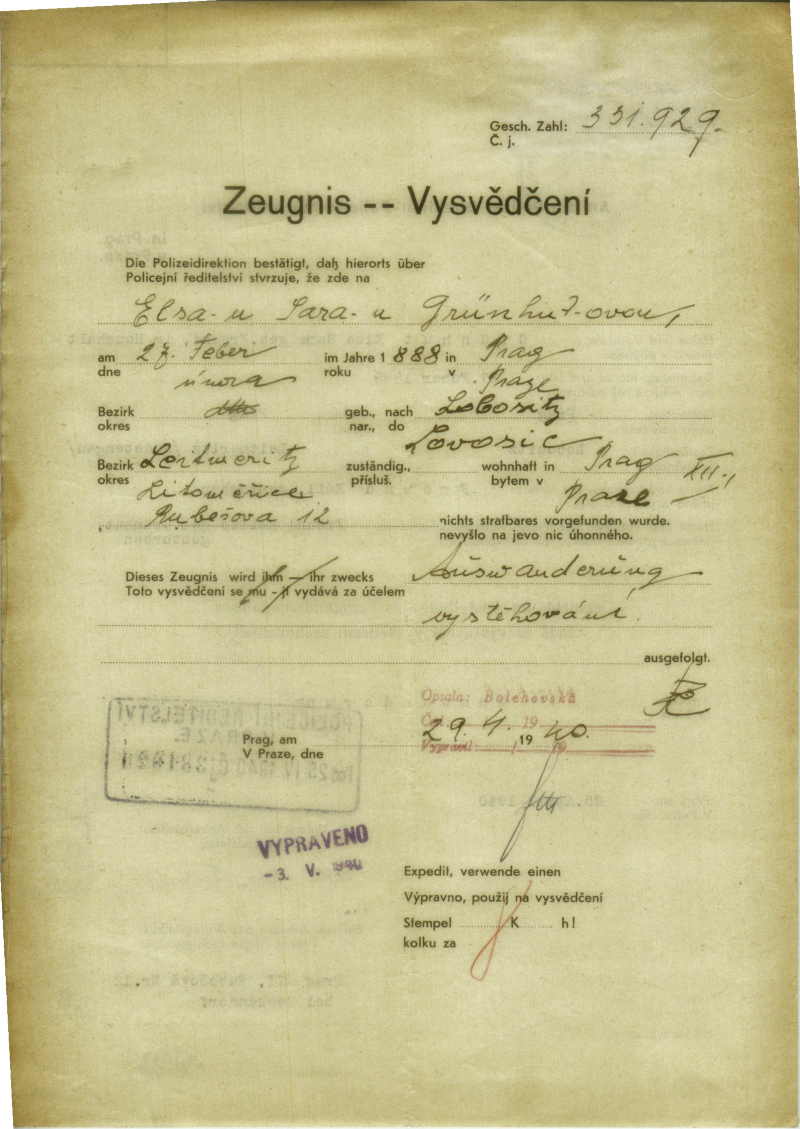 Gesch. Zahl: 331.929.
Č. j.
Zeugnis -- Vysvědčení
Die Polizeidirektion bestätigt, daß hierorts über
Policejní ředitelství stvrzuje, že zde na
Elsa-u Sara-u Grünhut-ovou,
am 27. Feber im Jahre 1888 in Prag
dne února roku v Praze
Bezirk geb., nach Lobositz
okres nar., do Lovosic
Bezirk Leitmeritz zuständig., wohnhaft in Prag XII.,
okres Litoměřice přísluš. bytem v Praze
Rubešova 12 nichts strafbares vorgefunden wurde.
nevyšlo na jevo nic úhonného.
Dieses Zeugnis wird ihm — ihr zwecks Auswanderung
Toto vysvědčení se mu - jí vydává za účelem
vystěhování
ausgefolgt.
Opsala: Bolehovská
Prag, am 29. 4. 1940.
V Praze, dne
VYPRAVENO
-3. V. 1940
Expedit, verwende einen
Výpravno, použij na vysvědčení
Stempel K h!
kolku za